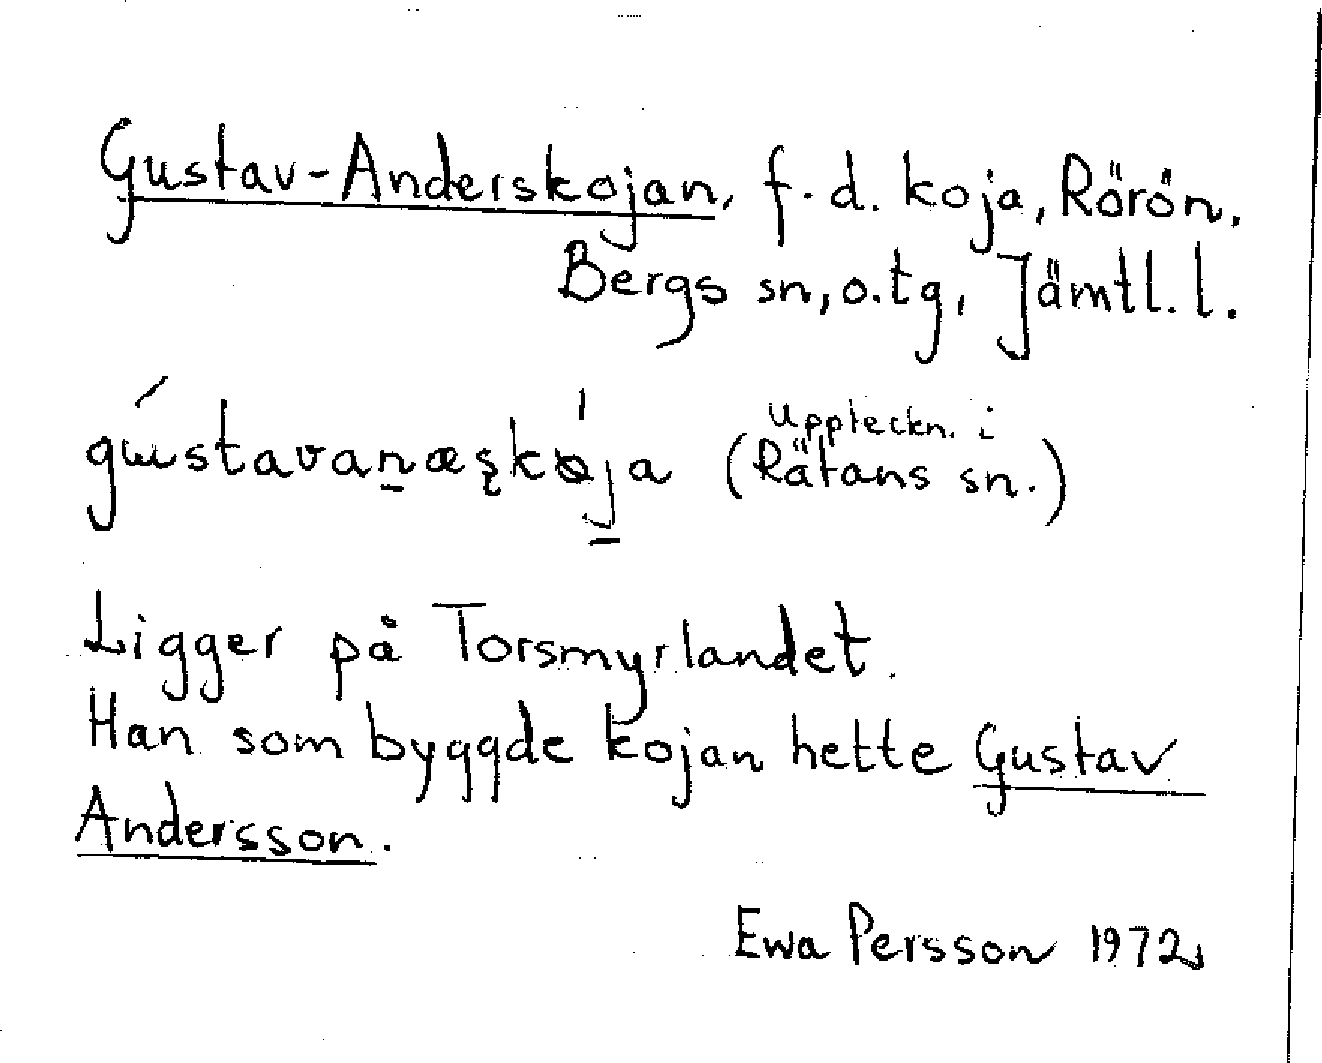 Gustav-Anderskojan, f.d. koja, Rörön,
Bergs sn, o. tg, Jämtl. l.
(Uppteckn. i
Rätans sn.)
Ligger på Torsmyrlandet.
Han som byggde kojan hette Gustav
Andersson.
Ewa Persson 1972